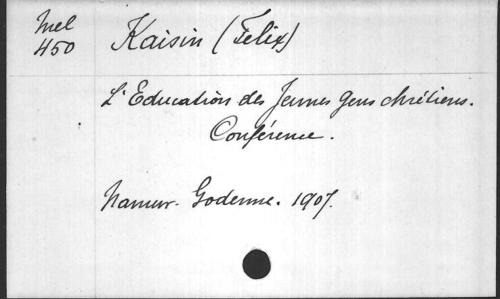 Mel
450
Kaisin (Felix)
L'Education des Jeunes Gens chrétiens.
Conférence.
Namur. Godenne. 1907.